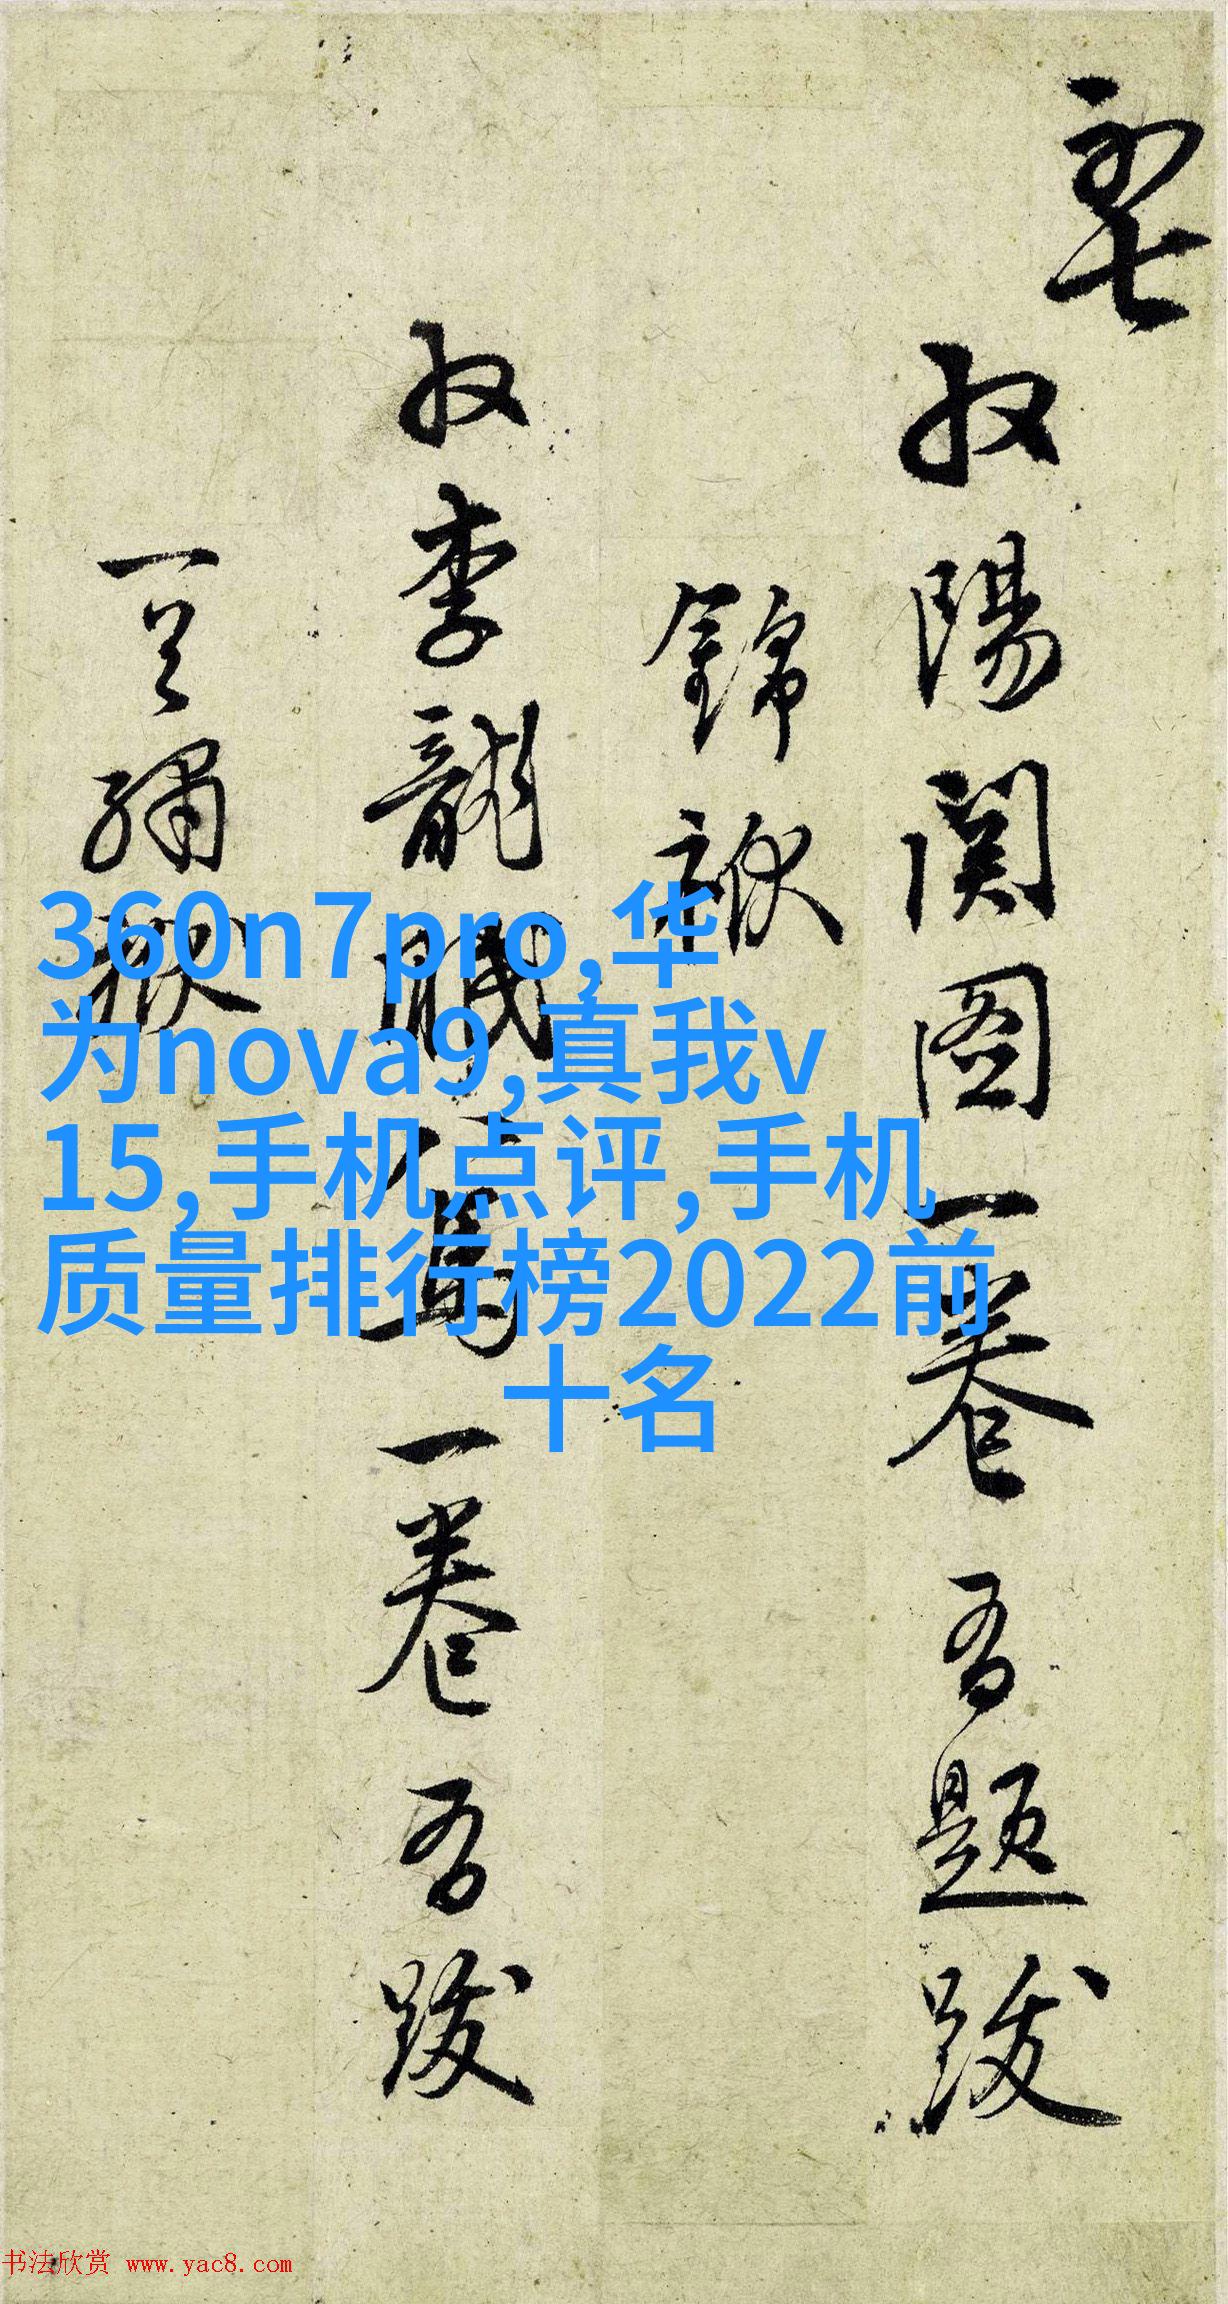 叔陽関图一卷 吾題跋
錦
叔李龍眠
一卷 吾跋
一
360n7pro,华
为nova9,真我v
15,手机点评,手机
质量排行榜2022前
十名
书法欣赏 www.yac8.com